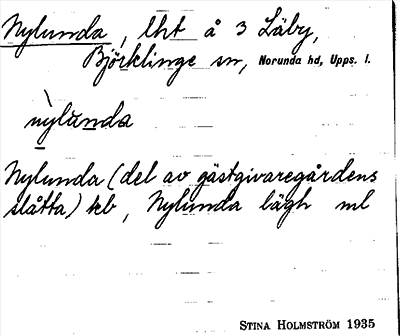 Nylunda, lht å 3 Läby,
Björklinge sn, Norunda hd, Upps. l.
nylunda
Nylunda (del av gästgivaregårdens
slåtta) kb, Nylunda lägh ml
STINA HOLMSTRÖM 1935